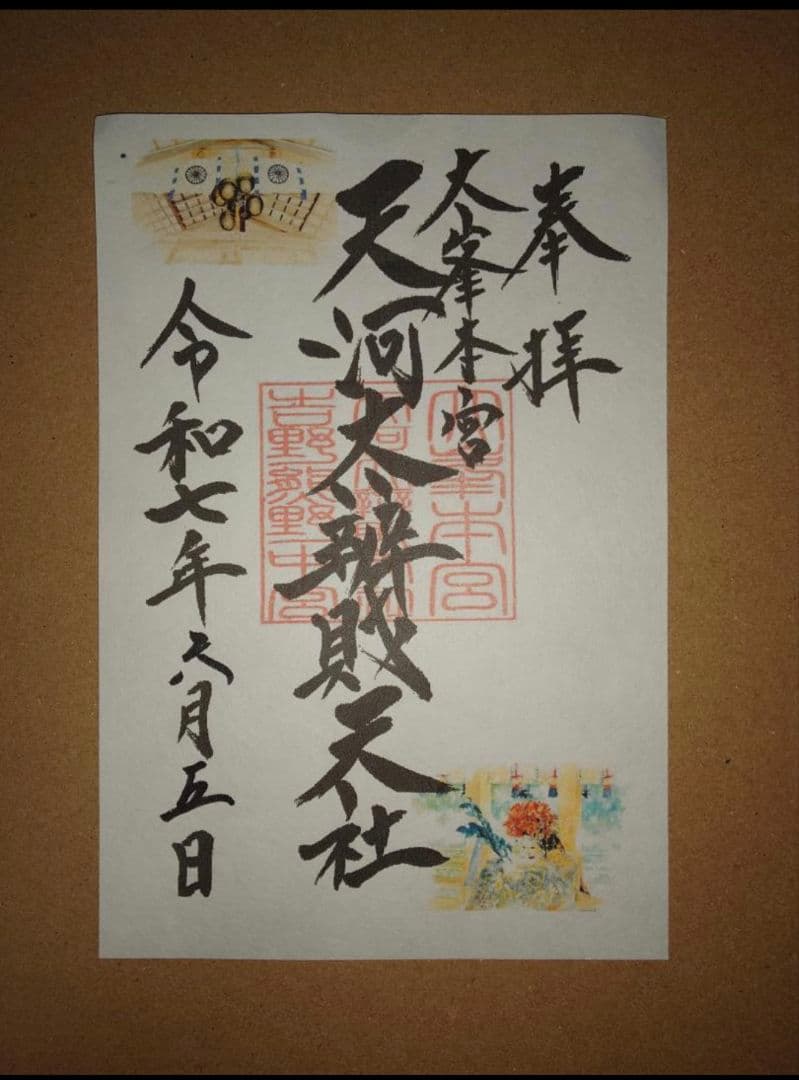 奉拝
大峯本宮
天河大辨財天社
令和七年六月五日
吉野熊野中宮